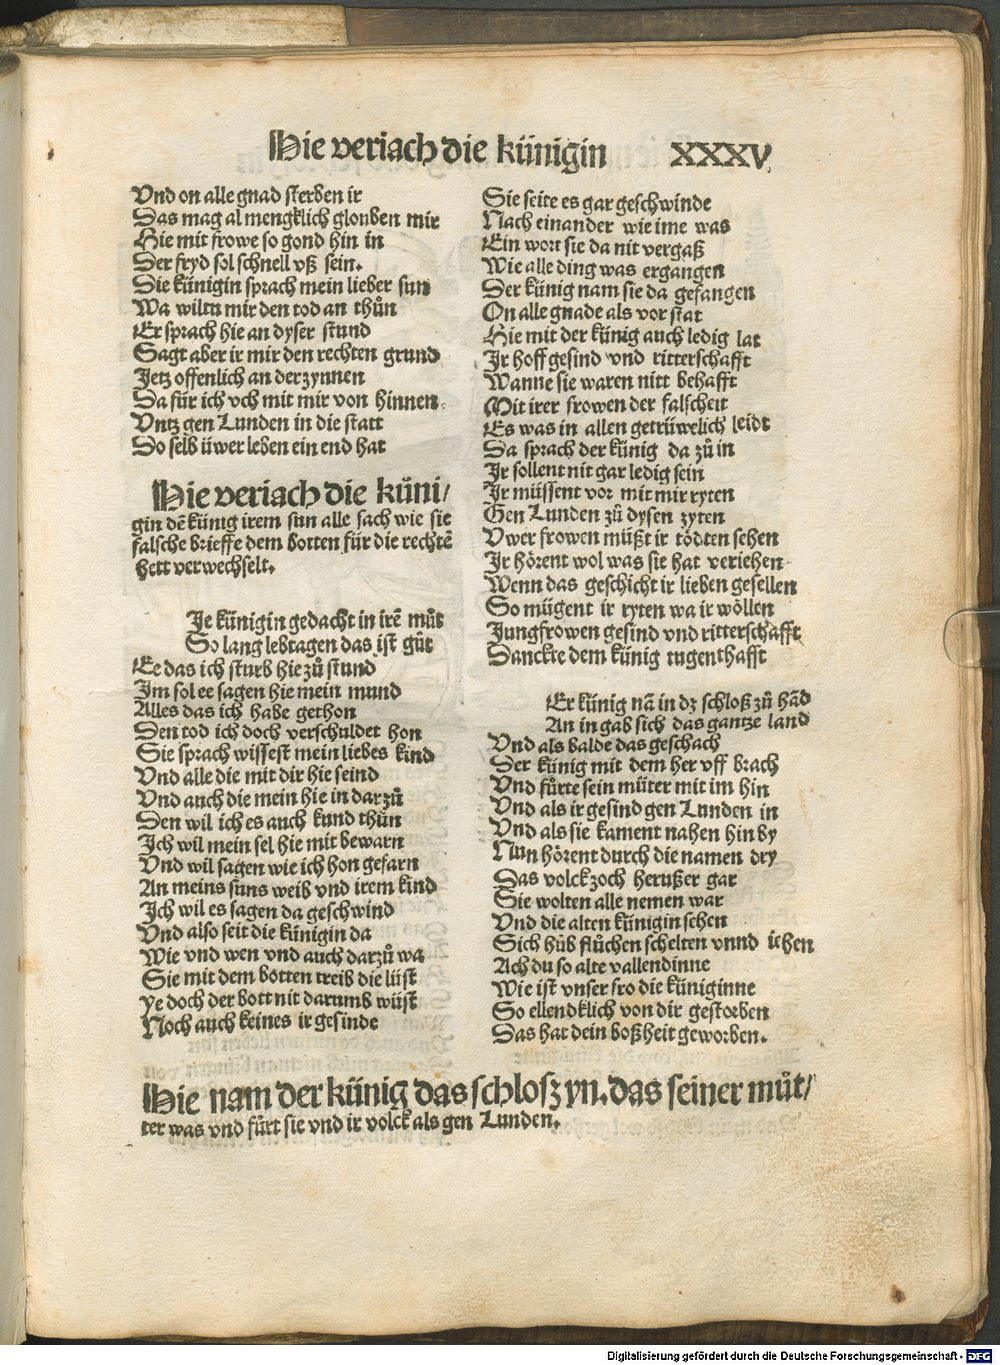 Hie veriach die künigin XXXV
Vnd on alle gnad sterben ir
Das mag al mengklich glouben mir
Hie mit frowe so gond hin in
Der fryd sol schnell vß sein.
Die künigin sprach mein lieber sun
Wa wiltu mir den tod an thůn
Er sprach hie an dyser stund
Sagt aber ir mir den rechten grund
Jetz offenlich an der zynnen
Da für ich vch mit mir von hinnen.
Vntz gen Lunden in die statt
Do selb üwer leben ein end hat
Hie veriach die küni/
gin dē künig irem sun alle sach wie sie
falsche brieffe dem botten für die rechtē
hett verwechselt.
Je künigin gedacht in irē můt
So lang lebtagen das ist gůt
Ee das ich sturb hie zů stund
Im sol ee sagen hie mein mund
Alles das ich habe gethon
Den tod ich doch verschuldet hon
Sie sprach wissest mein liebes kind
Vnd alle die mit dir hie seind
Vnd auch die mein hie in dar zů
Den wil ich es auch kund thůn
Ich wil mein sel hie mit bewarn
Vnd wil sagen wie ich hon gefarn
An meins suns weib vnd irem kind
Ich wil es sagen da geschwind
Vnd also seit die künigin da
Wie vnd wen vnd auch darzů wa
Sie mit dem botten treib die lüst
ye doch der bott nit darumb wüst
Noch auch keines ir gesinde
Sie seite es gar geschwinde
Nach einander wie ime was
Ein wort sie da nit vergaß
Wie alle ding was ergangen
Der künig nam sie da gefangen
On alle gnade als vor stat
Hie mit der künig auch ledig lat
Jr hoff gesind vnd ritterschafft
Wanne sie waren nitt behafft
Mit irer frowen der falscheit
Es was in allen getrüwelich leidt
Da sprach der künig da zů in
Jr sollent nit gar ledig sein
Jr müssent vor mit mir ryten
Gen Lunden zů dysen zyten
Vwer frowen müßt ir tödten sehen
Jr hörent wol was sie hat veriehen
Wenn das geschicht ir lieben gesellen
So mügent ir ryten wa ir wöllen
Jungfrowen gesind vnd ritterschafft
Danckte dem künig tugenthafft
Er künig nā in dz schloß zů hād
An in gab sich das gantze land
Vnd als balde das geschach
Der künig mit dem her vff brach
Vnd fůrte sein müter mit im hin
Vnd als ir gesind gen Lunden in
Vnd als sie kament nahen hin by
Nun hörent durch die namen dry
Das volck zoch herußer gar
Sie wolten alle nemen war
Vnd die alten künigin sehen
Sich hůb flůchen schelten vnnd iehen
Ach du so alte vallendinne
Wie ist vnser fro die küniginne
So ellendklich von dir gestorben
Das hat dein boßheit geworben.
Hie nam der künig das schlosz yn. das seiner můt/
ter was vnd fürt sie vnd ir volck als gen Lunden.
Digitalisierung gefördert durch die Deutsche Forschungsgemeinschaft - DFG